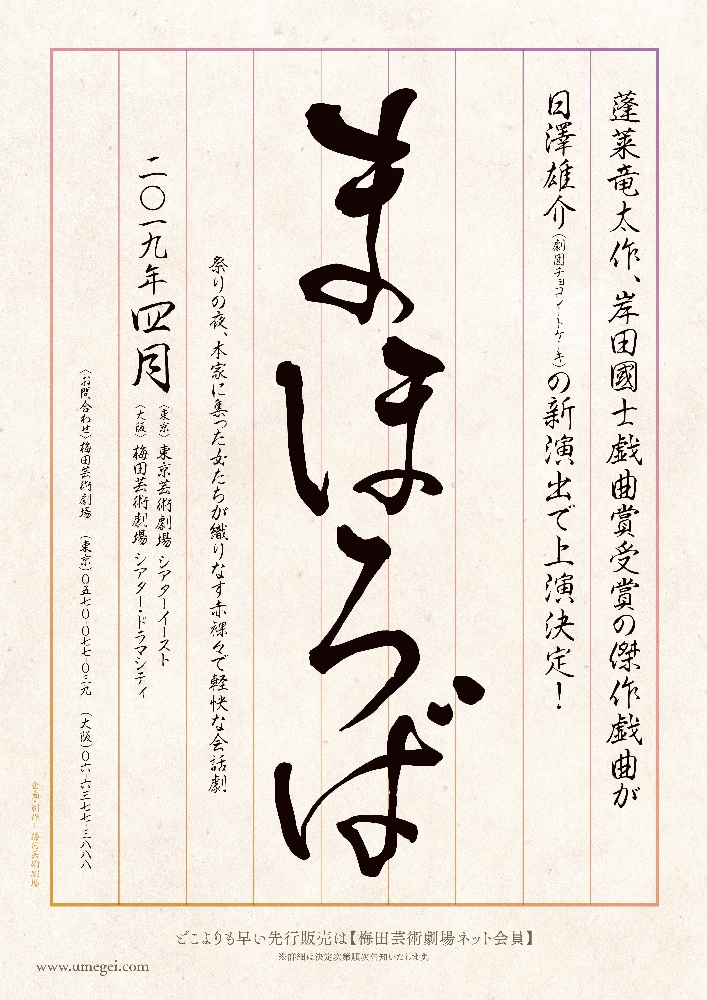 蓬莱竜太作、岸田國士戯曲賞受賞の傑作戯曲が
日澤雄介(劇団チョコレートケーキ)の新演出で上演決定!
まほろば
祭りの夜、本家に集った女たちが織りなす赤裸々で軽快な会話劇
二〇一九年四月
(東京)東京芸術劇場 シアターイースト
(大阪)梅田芸術劇場 シアター・ドラマシティ
(お問合わせ)梅田芸術劇場 (東京)〇五七〇-〇七七-〇三九 (大阪)〇六-六三七七-三八八八
企画・制作 梅田芸術劇場
どこよりも早い先行販売は【梅田芸術劇場ネット会員】
※詳細は決定次第順次告知いたします
www.umegei.com